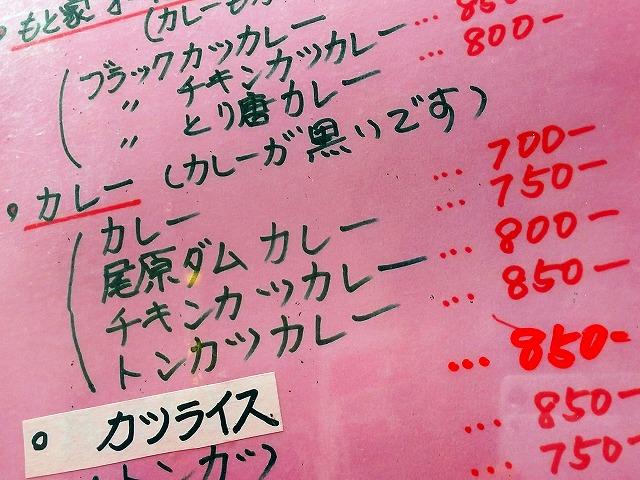 ・もと家
(カレーもカ
ブラックカツカレー … 850
〃 チキンカツカレー … 800-
〃 とり唐カレー
・カレー (カレーが黒いです)
カレー … 700-
尾原ダムカレー … 750-
チキンカツカレー … 800-
トンカツカレー … 850-
。カツライス … 850-
トンカツ … 850-
… 750-